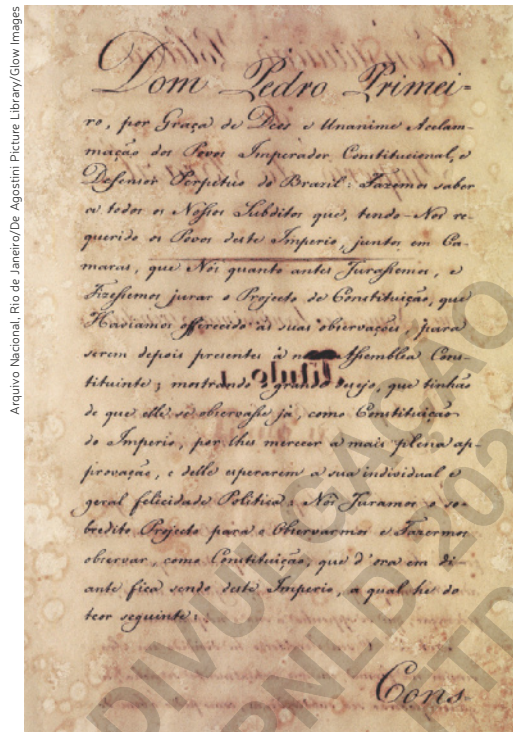 Arquivo Nacional, Rio de Janeiro/De Agostini Picture Library/Glow Images
Dom Pedro Primei=
ro, por Graça de Deos e Unanime Acclam-
mação dos Povos Imperador Constitucional, e
Defensor Perpetuo do Brazil: Fazemos saber
a todos os Nossos Subditos que, tendo-Nos re-
querido os Povos deste Imperio, juntos em Ca-
maras, que Nós quanto antes Jurassemos, e
Fizessemos jurar o Projecto de Constituição, que
Haviamos offerecido ás suas observações para
serem depois presentes á nova Assemblea Cons-
tituinte; mostrando o grande desejo, que tinhão
de que elle se observasse já como Constituição
do Imperio, por lhes merecer a mais plena ap-
provação, e delle esperarem a sua individual e
geral felicidade Politica: Nós Juramos o so-
bredito Projecto para o Observarmos e Fazermos
observar, como Constituição, que d'ora em di-
ante fica sendo deste Imperio, a qual he do
teor seguinte:
Cons
DIVULGAÇÃO
PNLD 202
FTD